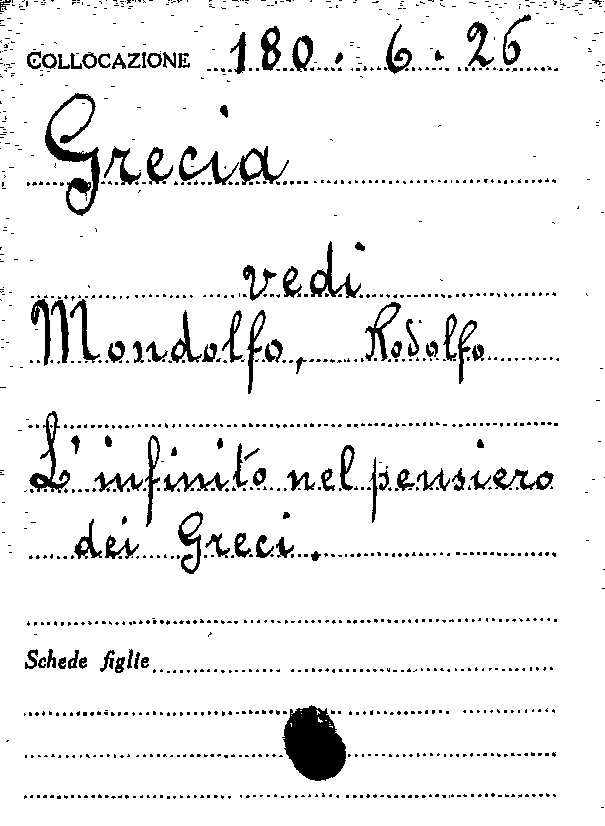 COLLOCAZIONE 180. 6. 26
Grecia
vedi
Mondolfo, Rodolfo
L'infinito nel pensiero
dei Greci.
Schede figlie